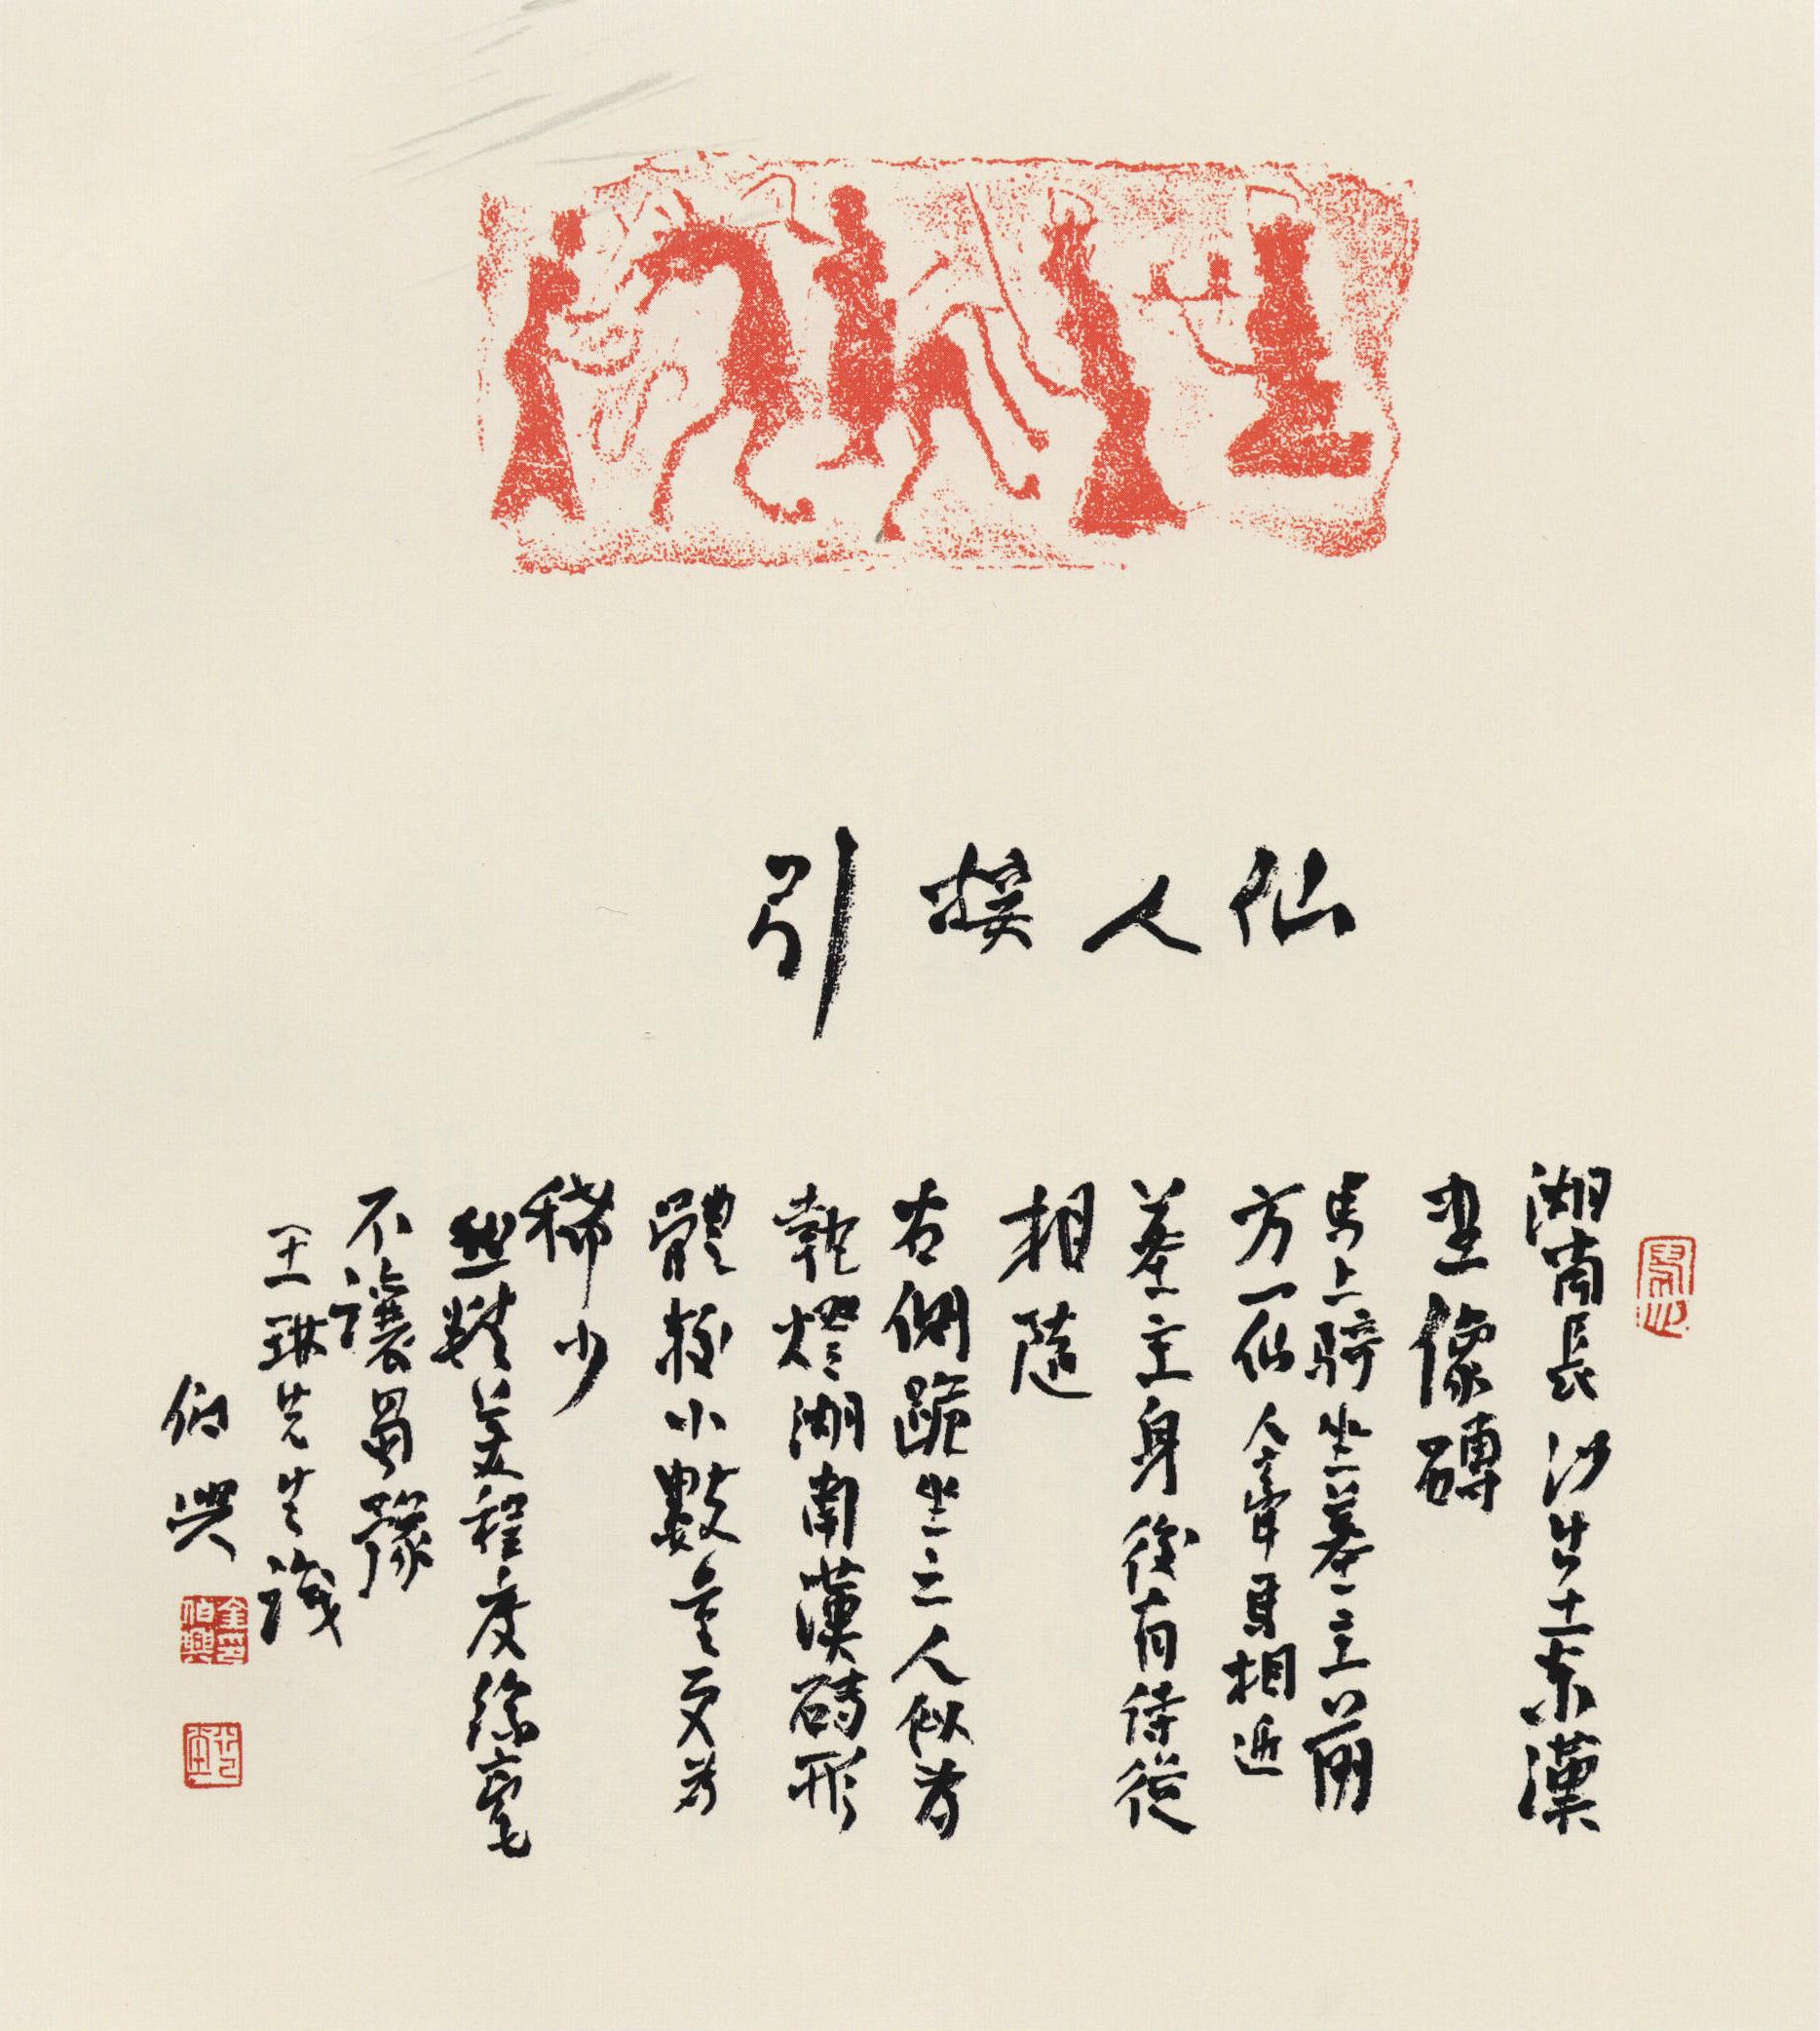 仙人接引
湖南長沙出土東漢
畫像磚
馬上騎坐墓主前
方一仙人牽馬相迎
墓主身後有侍從
相隨
右側跪坐之人似爲
執燈湖南漢磚形
體較小數量更爲
稀少
然精美程度絲毫
不讓蜀豫
王琳先生識
伯興